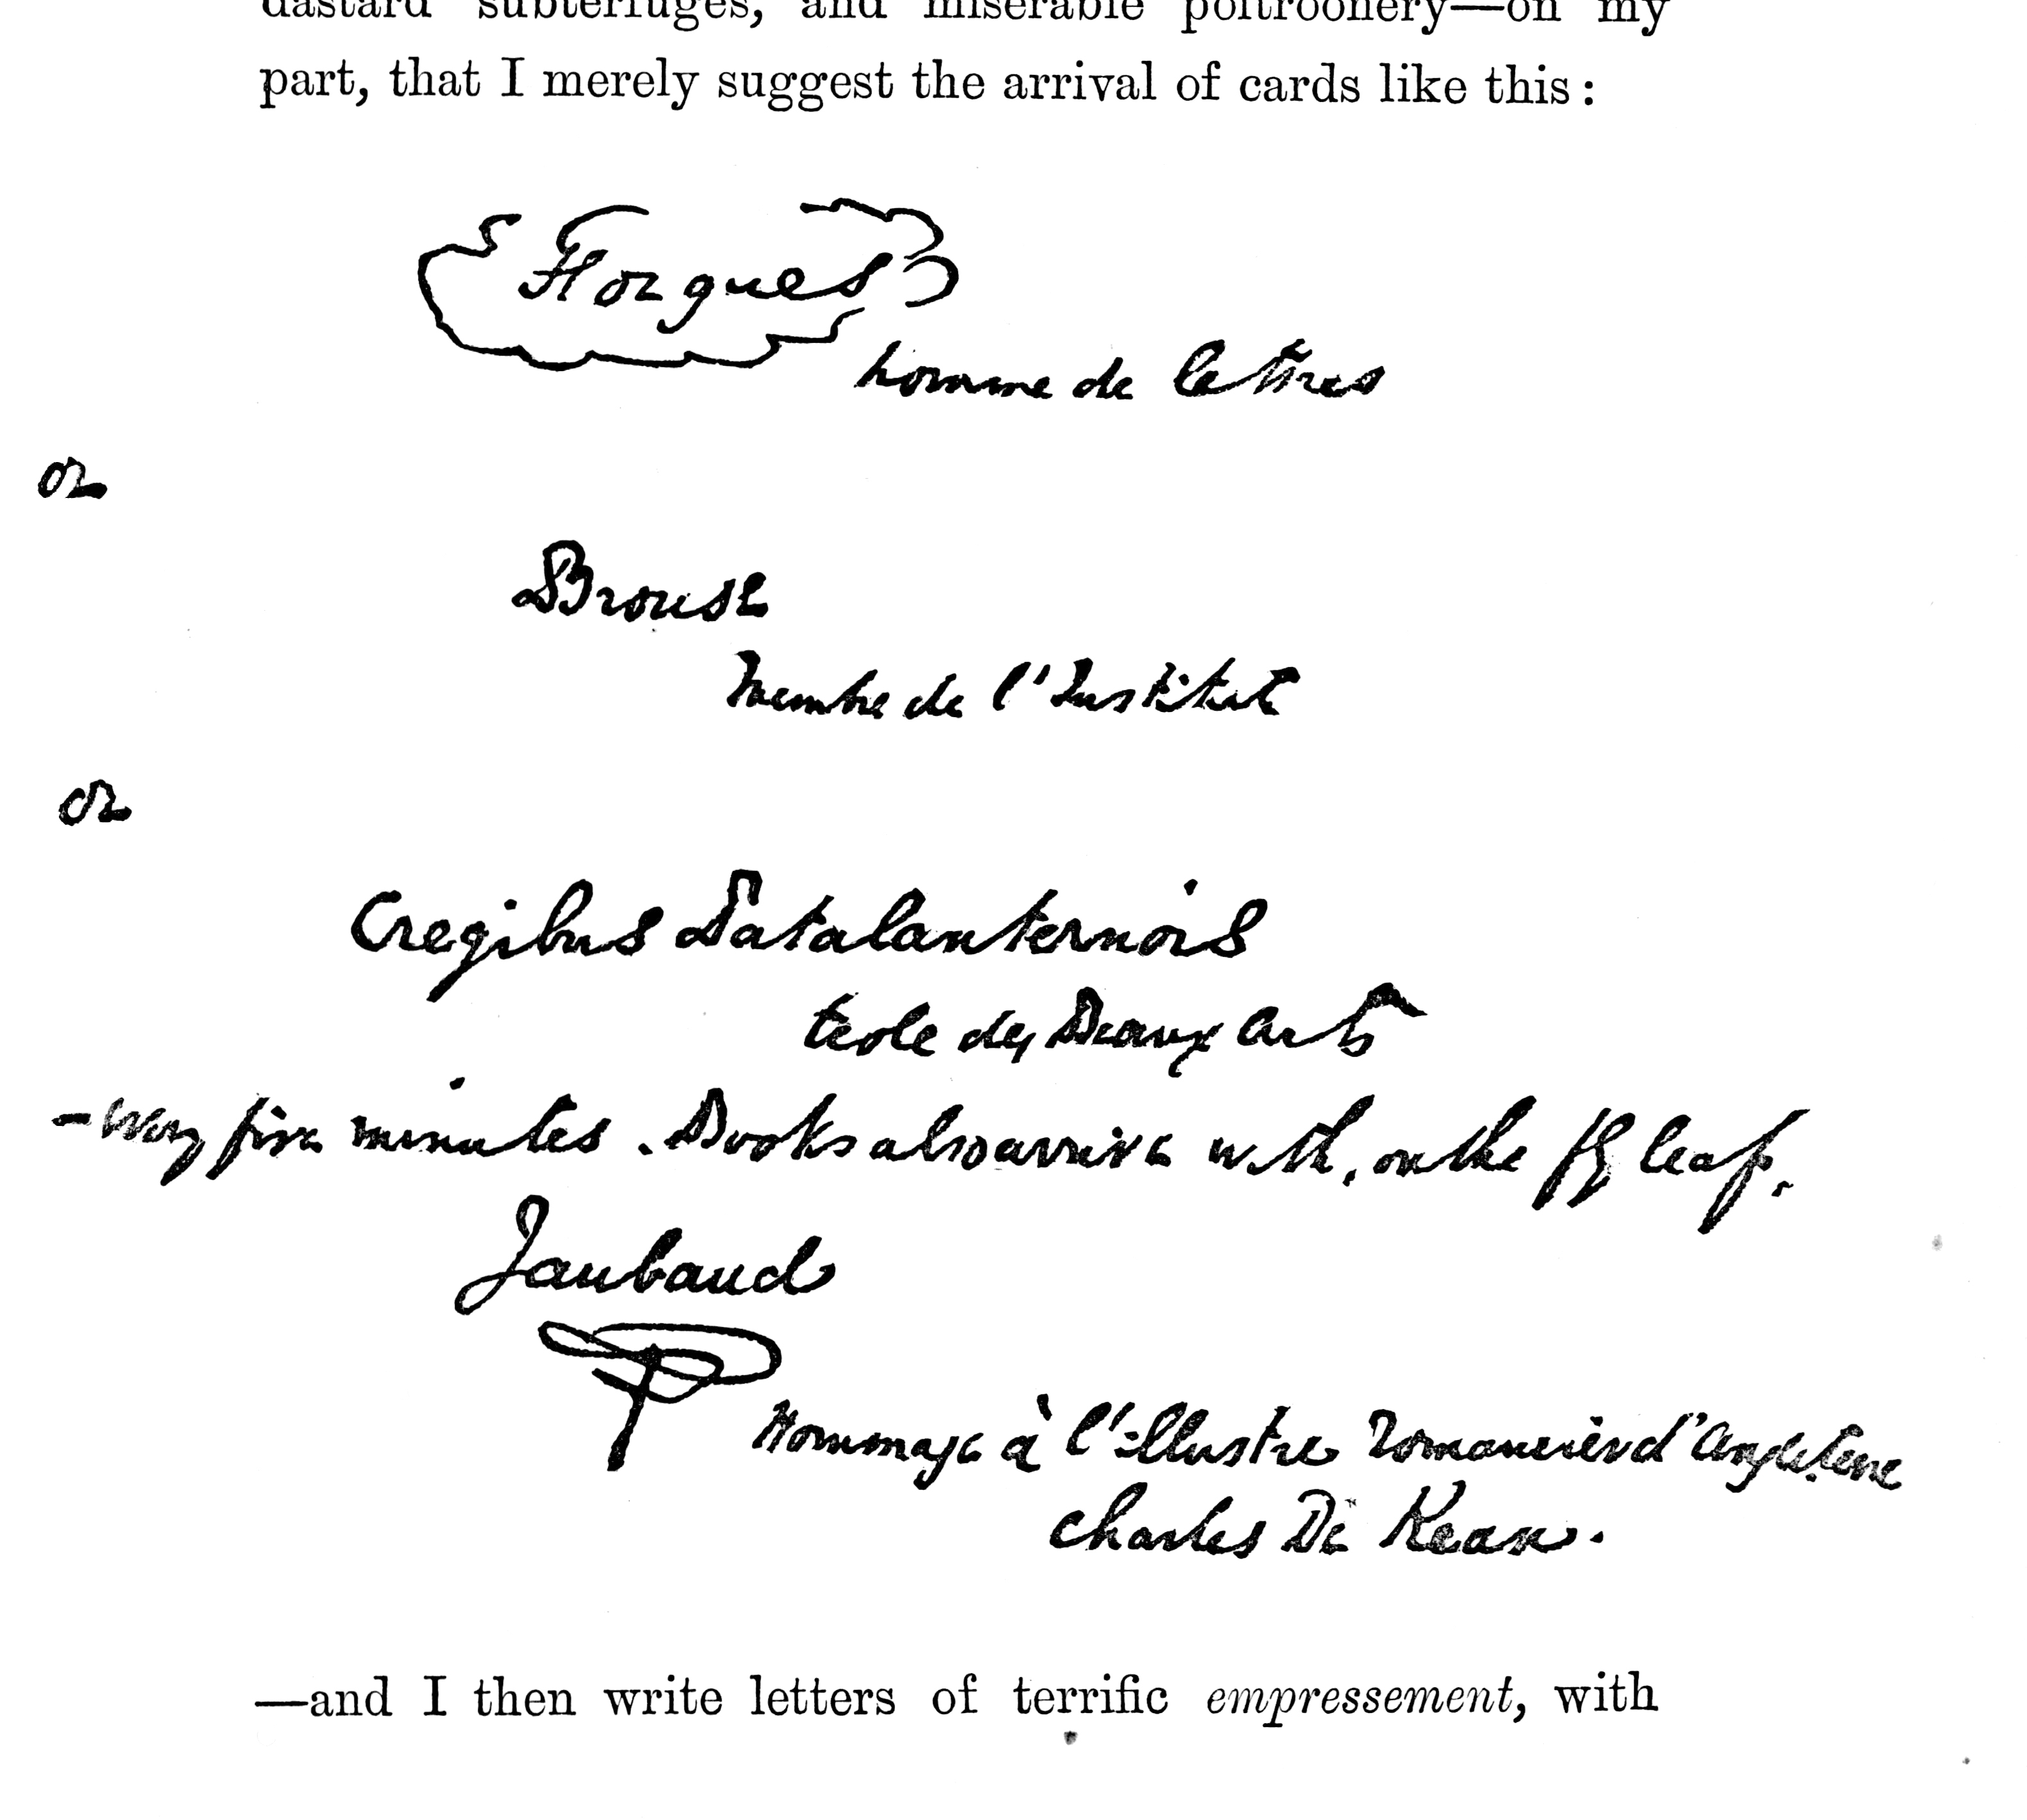 dastard subterfuges, and miserable poltroonery—on my
part, that I merely suggest the arrival of cards like this:
Forgues
homme de lettres
or
Brouse
Membre de l'Institut
or
Cregibus Patalanternois
Ecole des Beaux Arts
—every five minutes. Books also arrive with, on the fly leaf,
Jaubaud
Hommage à l'illustre Romancier d'Angleterre
Charles De Kean.
—and I then write letters of terrific empressement, with